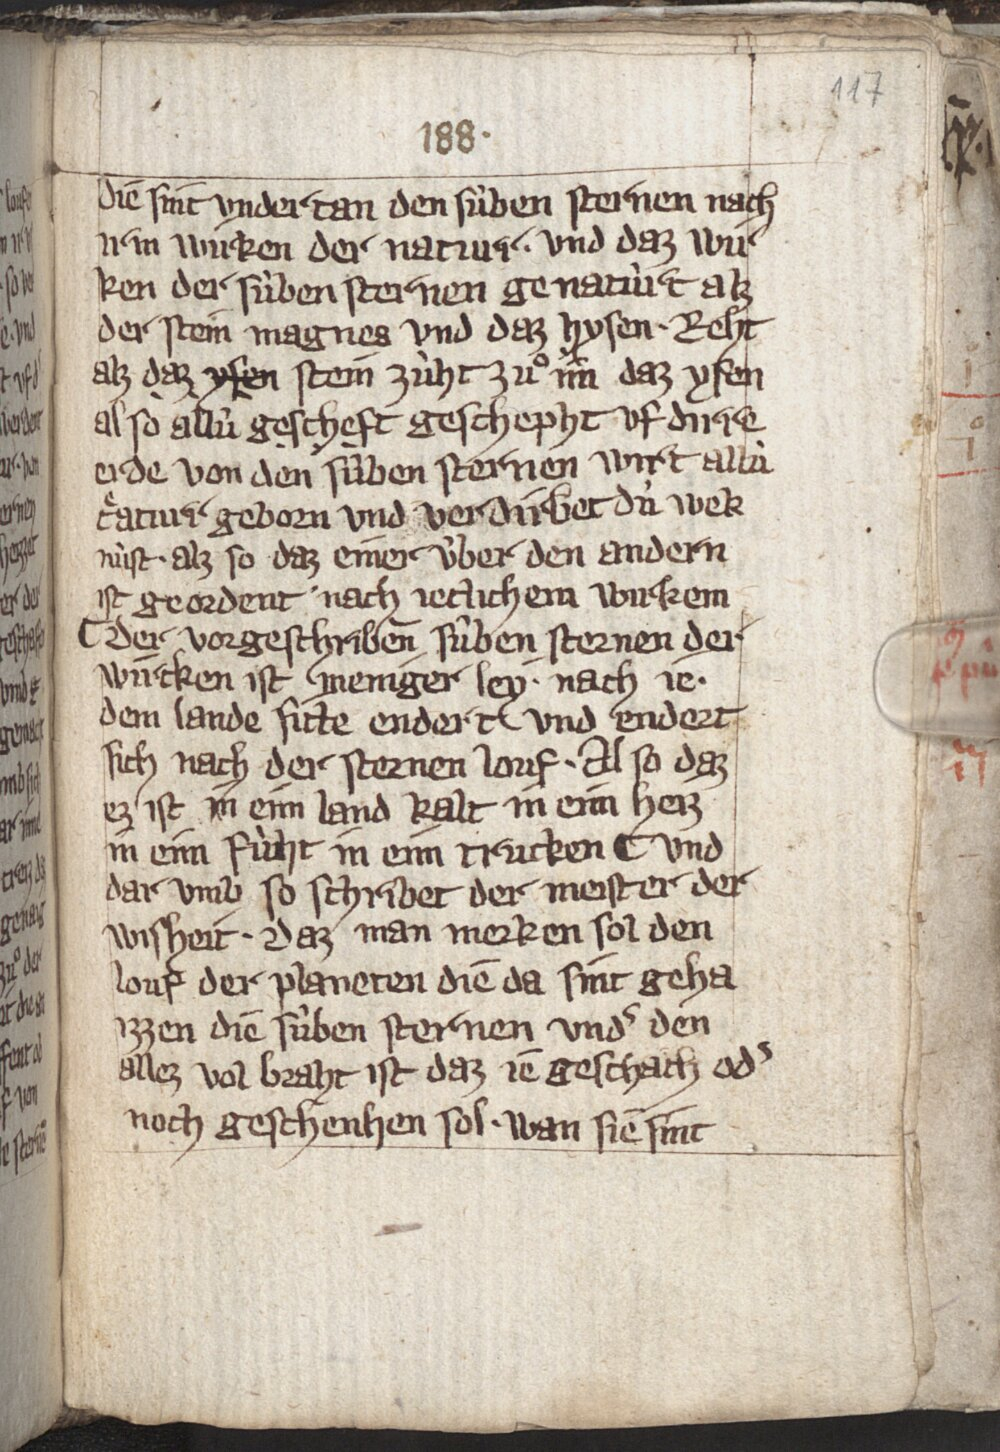 117
188.
die sint vndertan den sùben sternen nach
irm wùrken der natiur. vnd daz wùr
ken der sùben sternen genatùrt alz
der stein magnes vnd daz hysen. Reht
alz daz ysen stein zùht zuͦ im daz ysen
also allù gescheft geschepht vf dirre
erde von den sùben sternen wirt allù
c͛atiur geborn vnd verdirbet dù wek
nùst. alz so daz einer ùber den andern
ist geordent nach ietlichem wurkem
C Der vorgeschriben sùben sternen der
wùrcken ist meniger ley. nach ie.
dem lande sitte endert vnd endert
sich nach der sternen louf. Al so daz
ez ist in eim land kalt in eim heiz
in eim fùht in eim trucken C vnd
dar vmb so schribet der meister der
wisheit. Daz man merken sol den
louf der planeten die da sint geha
izzen die sùben sternen vnd͛ den
allez vol braht ist daz ie geschach od͛
noch geschenhen sol. wan sie sint